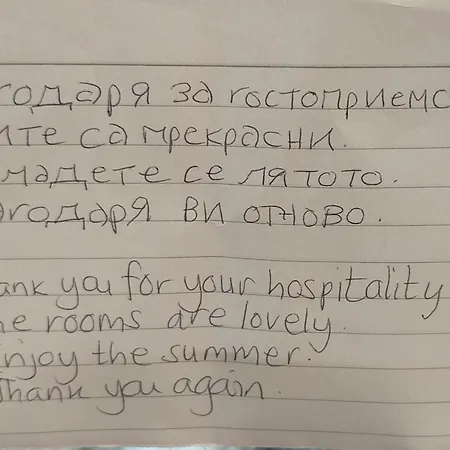 годаря за гостоприемс
ите са прекрасни.
мадете се лятото.
агодаря ви отново.
ank you for your hospitality
he rooms are lovely.
njoy the summer.
Thank you again.